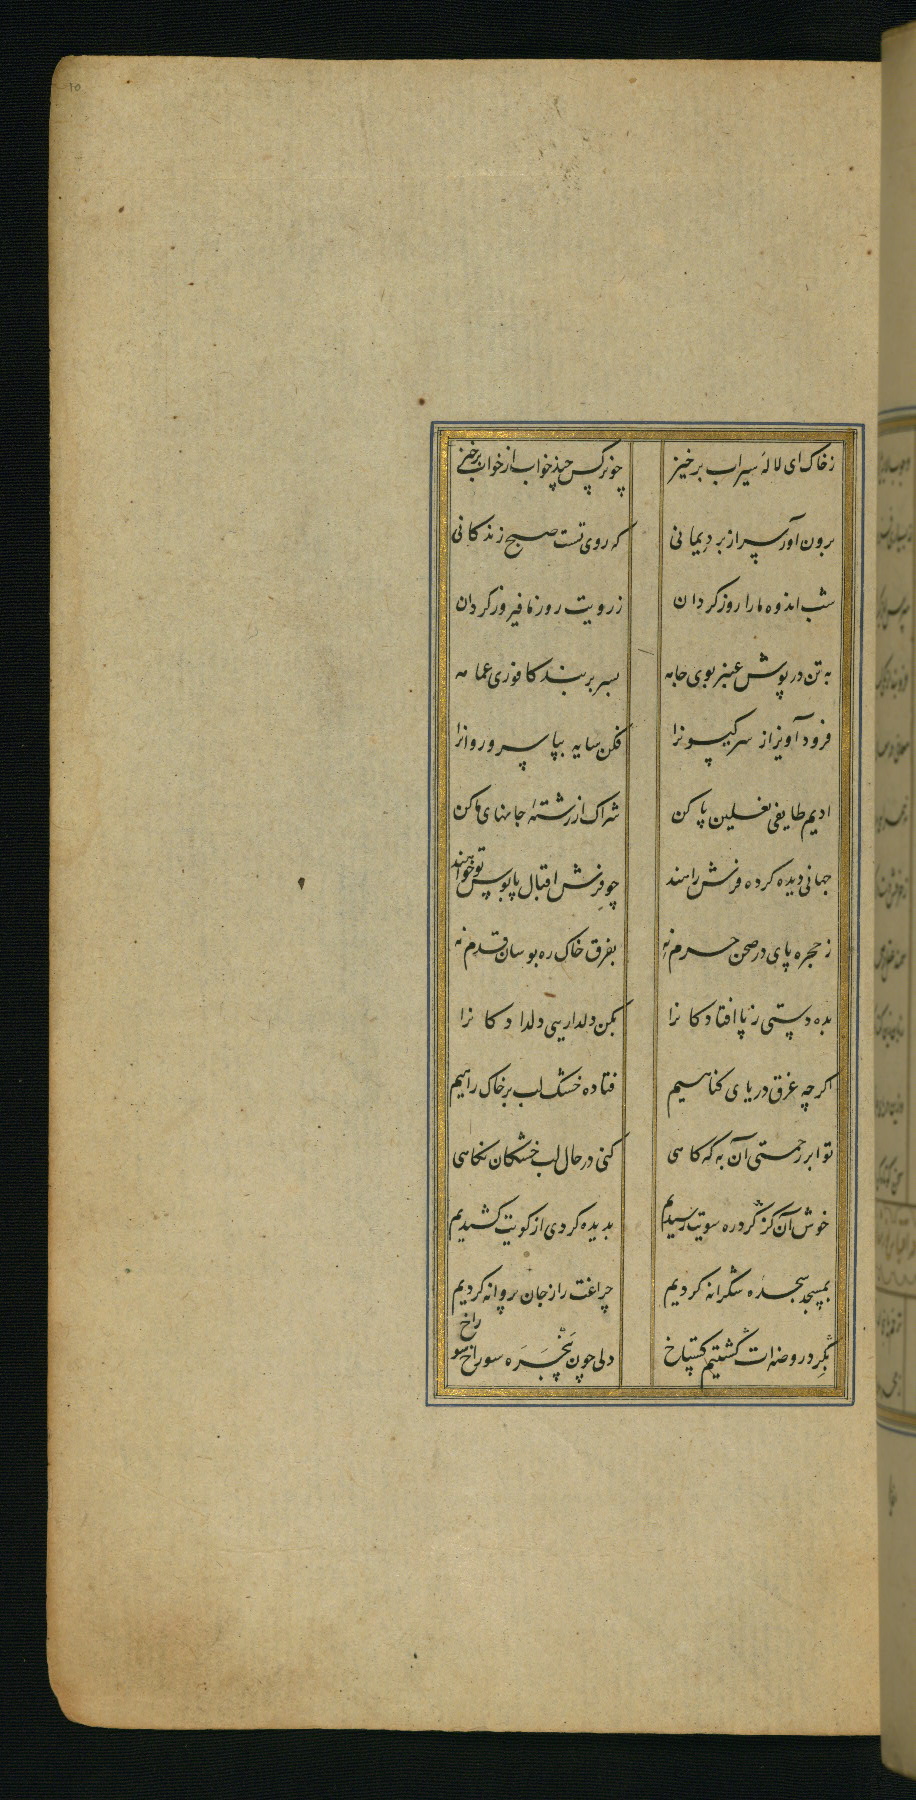 زخاک ای لالهٔ سیراب برخیز چو نرکس چند خواب از خواب برخیز
برون آور سر از برد یمانی که روی تست صبح زندکانی
شب اندوه ما را روز کردان ز رویت روز ما فیروز کردان
به تن در پوش عنبر بوی جامه بسر بربند کافوری عمامه
فرود آویز از سر کیسوانرا فکن سایه بپا سرو روانرا
ادیم طایفی نعلین پا کن شراک از رشتهٔ جانهای ما کن
جهانی دیده کرده فرش راهند چو فرش اقبال پابوس تو خواهند
ز حجره پای در صحن حرم نه بفرق خاک ره بوسان قدم نه
بده دستی ز پا افتادکانرا بکن دلداریی دلدادکانرا
اکرچه غرق دریای کناهیم فتاده خشک لب بر خاک راهیم
تو ابر رحمتی آن به که کاهی کنی در حال لب خشکان نکاهی
خوش آن کز کرد ره سویت رسیدیم بدیده کردی از کویت کشیدیم
بمسجد سجدهٔ شکرانه کردیم چراغت را ز جان پروانه کردیم
بکرد روضه ات کشتیم کستاخ دلی چون پنجره سوراخ سوراخ